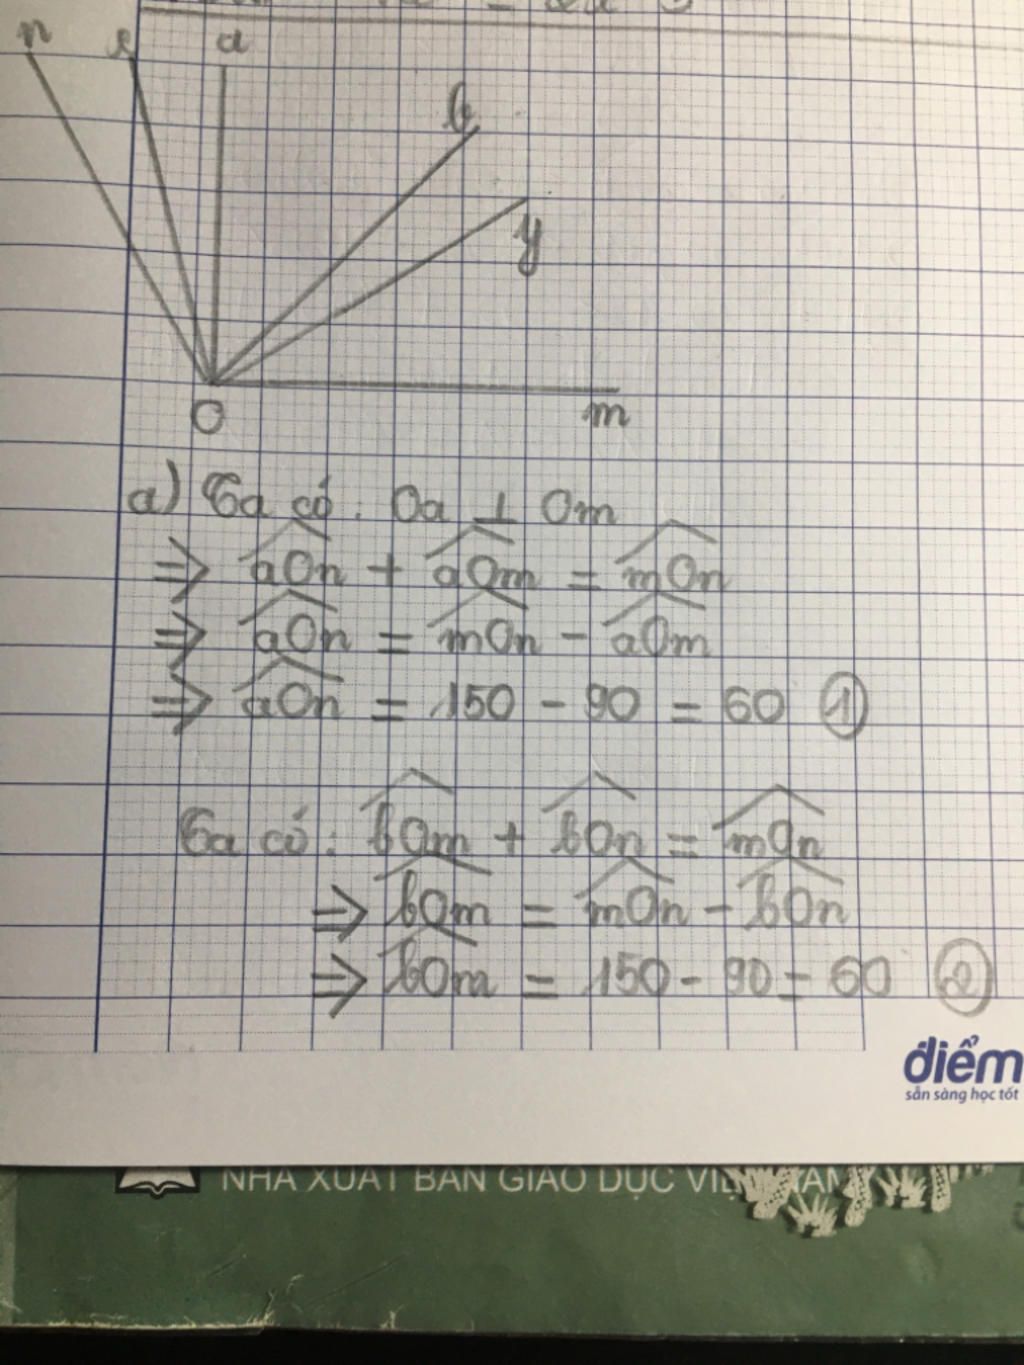 n
a
b
y
O
m
a) Ta có: Oa ⊥ Om
=> aOn + aOm = mOn
=> aOn = mOn - aOm
=> aOn = 150 - 90 = 60 ①
Ta có: bOm + bOn = mOn
=> bOm = mOn - bOn
=> bOm = 150 - 90 = 60 ②
điểm
sẵn sàng học tốt
NHÀ XUẤT BẢN GIÁO DỤC VIỆT NAM